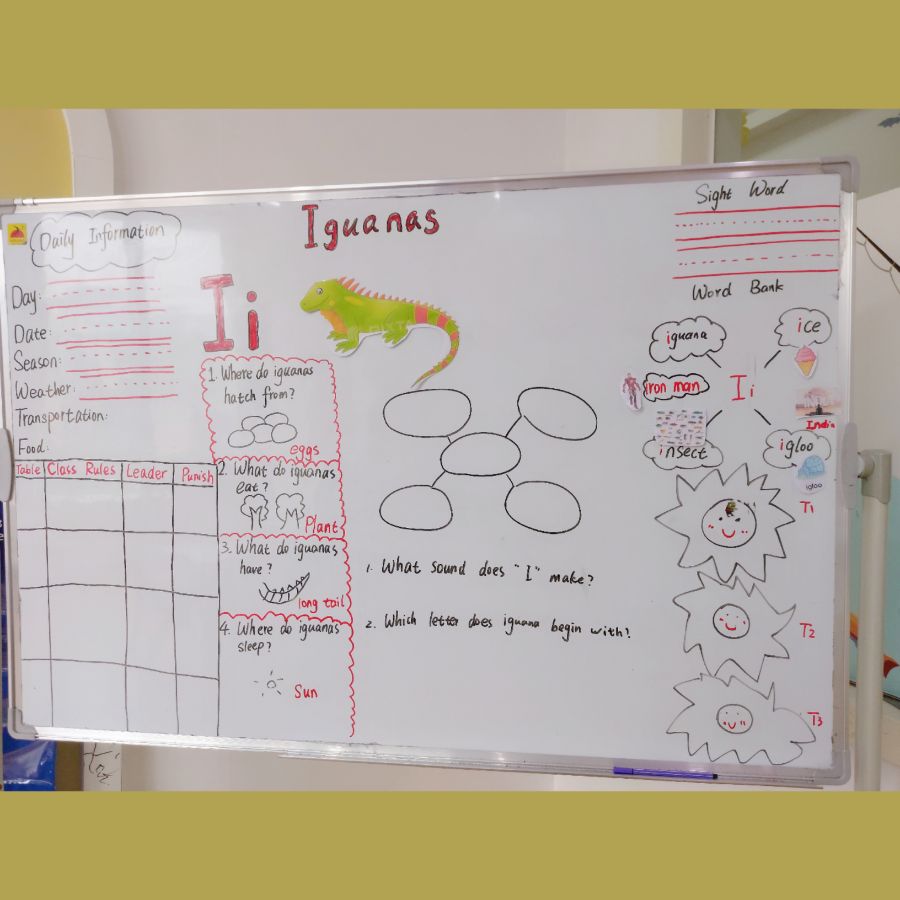 Iguanas
Daily Information
Day:
Date:
Season:
Weather:
Transportation:
Food:
Table Class Rules Leader Punish
Ii
1. Where do iguanas
hatch from?
eggs
2. What do iguanas
eat?
Plant
3. What do iguanas
have?
long tail
4. Where do iguanas
sleep?
Sun
1. What sound does "I" make?
2. Which letter does iguana begin with?
Sight Word
Word Bank
iguana
ice
Iron man
Ii
India
insect
igloo
igloo
T1
T2
T3